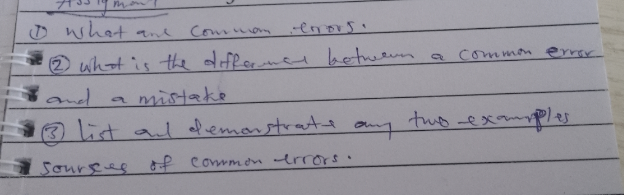 Assignment
① What are common errors.
② what is the difference between a common error
and a mistake
③ list and demonstrate any two examples
sourses of common errors.